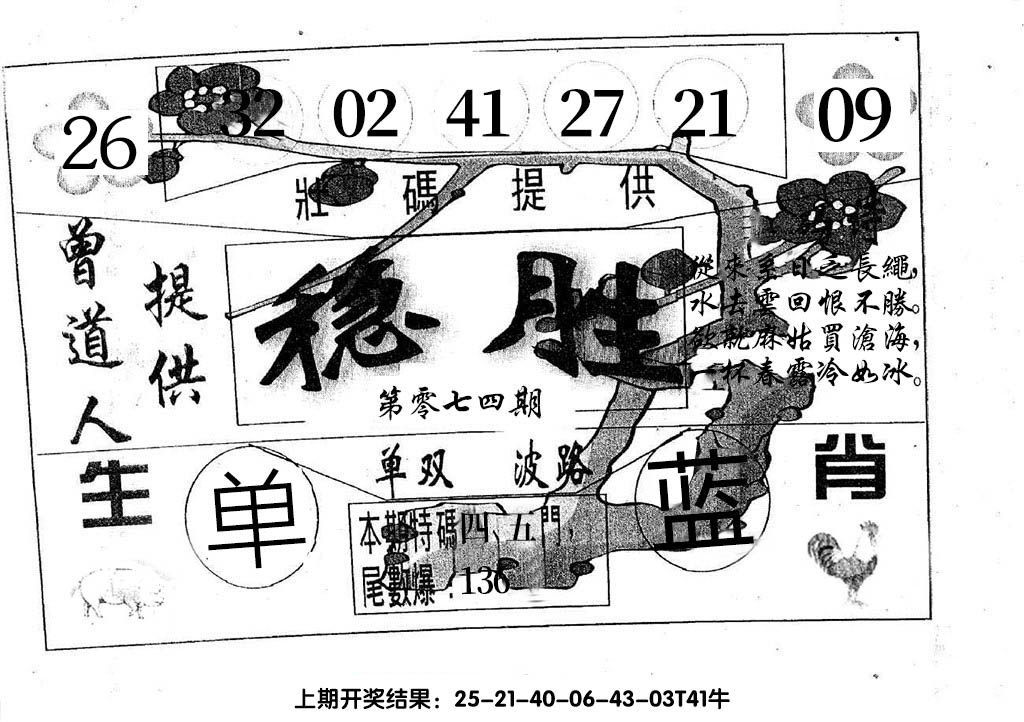 26 32 02 41 27 21 09
壯碼提供
特
曾道人
提供
稳胜
第零七四期
從來至日之長繩，
水去雲回恨不勝。
欲就麻姑買滄海，
一杯春露冷如冰。
单双 波路
生
肖
单
蓝
本期特碼四、五門，
尾數爆：136
上期开奖结果：25-21-40-06-43-03T41牛